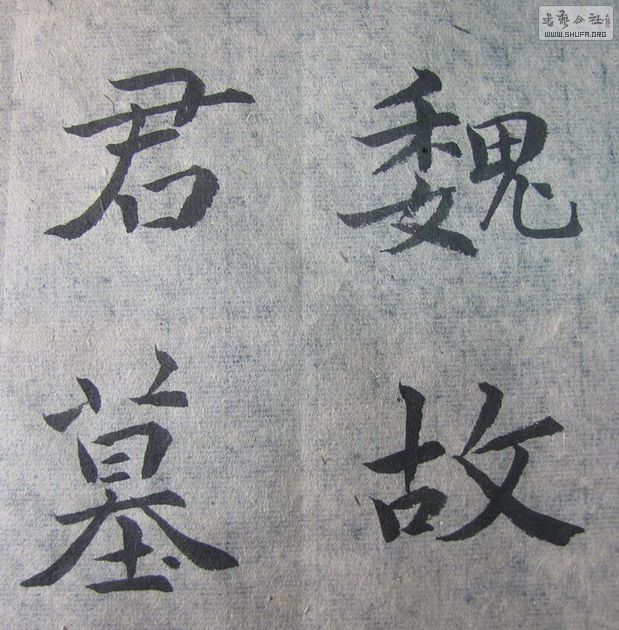 魏故
君墓
书艺公社
WWW.SHUFA.ORG